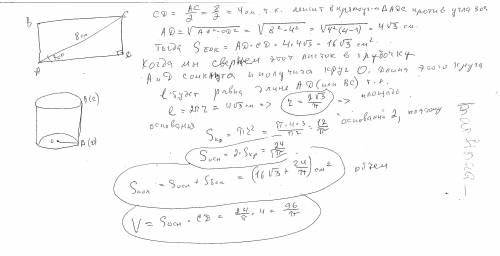 B
C
8см
60°
A
D
B(C)
A(D)
O
CD = AC/2 = 8/2 = 4см т.к. лежит в прямоуг-м ΔADC против угла 30°
AD = √AC²-CD² = √8²-4² = √4²(4-1) = 4√3 см.
Тогда Sбок = AD·CD = 4·4√3 = 16√3 см².
Когда мы свернем этот листок в трубочку
A и D сомкнутся и получится круг O. Длина этого круга
l будет равна длине AD (или BC) т.к.
l = 2πr = 4√3 см => r = 2√3/π => площадь
основания Sкр = πr² = π·4·3/π² = 12/π оснований 2, поэтому
Sосн = 2·Sкр = 24/π
Sпол = Sосн + Sбок = (16√3 + 24/π) см² объем
V = Sосн · CD = 24/π · 4 = 96/π